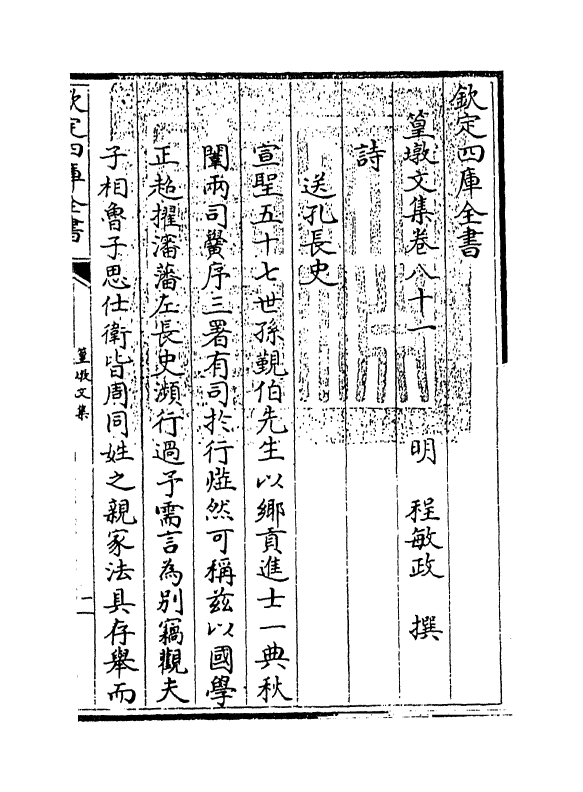 欽定四庫全書
篁墩文集卷八十一
明 程敏政 撰
詩
送孔長史
宣聖五十七世孫覲伯先生以鄉貢進士一典秋
闈兩司黌序三署有司於行燁然可稱茲以國學
正超擢瀋藩左長史瀕行過予需言為別竊觀夫
子相魯子思仕衛皆周同姓之親家法具存舉而
欽定四庫全書
篁墩文集
一